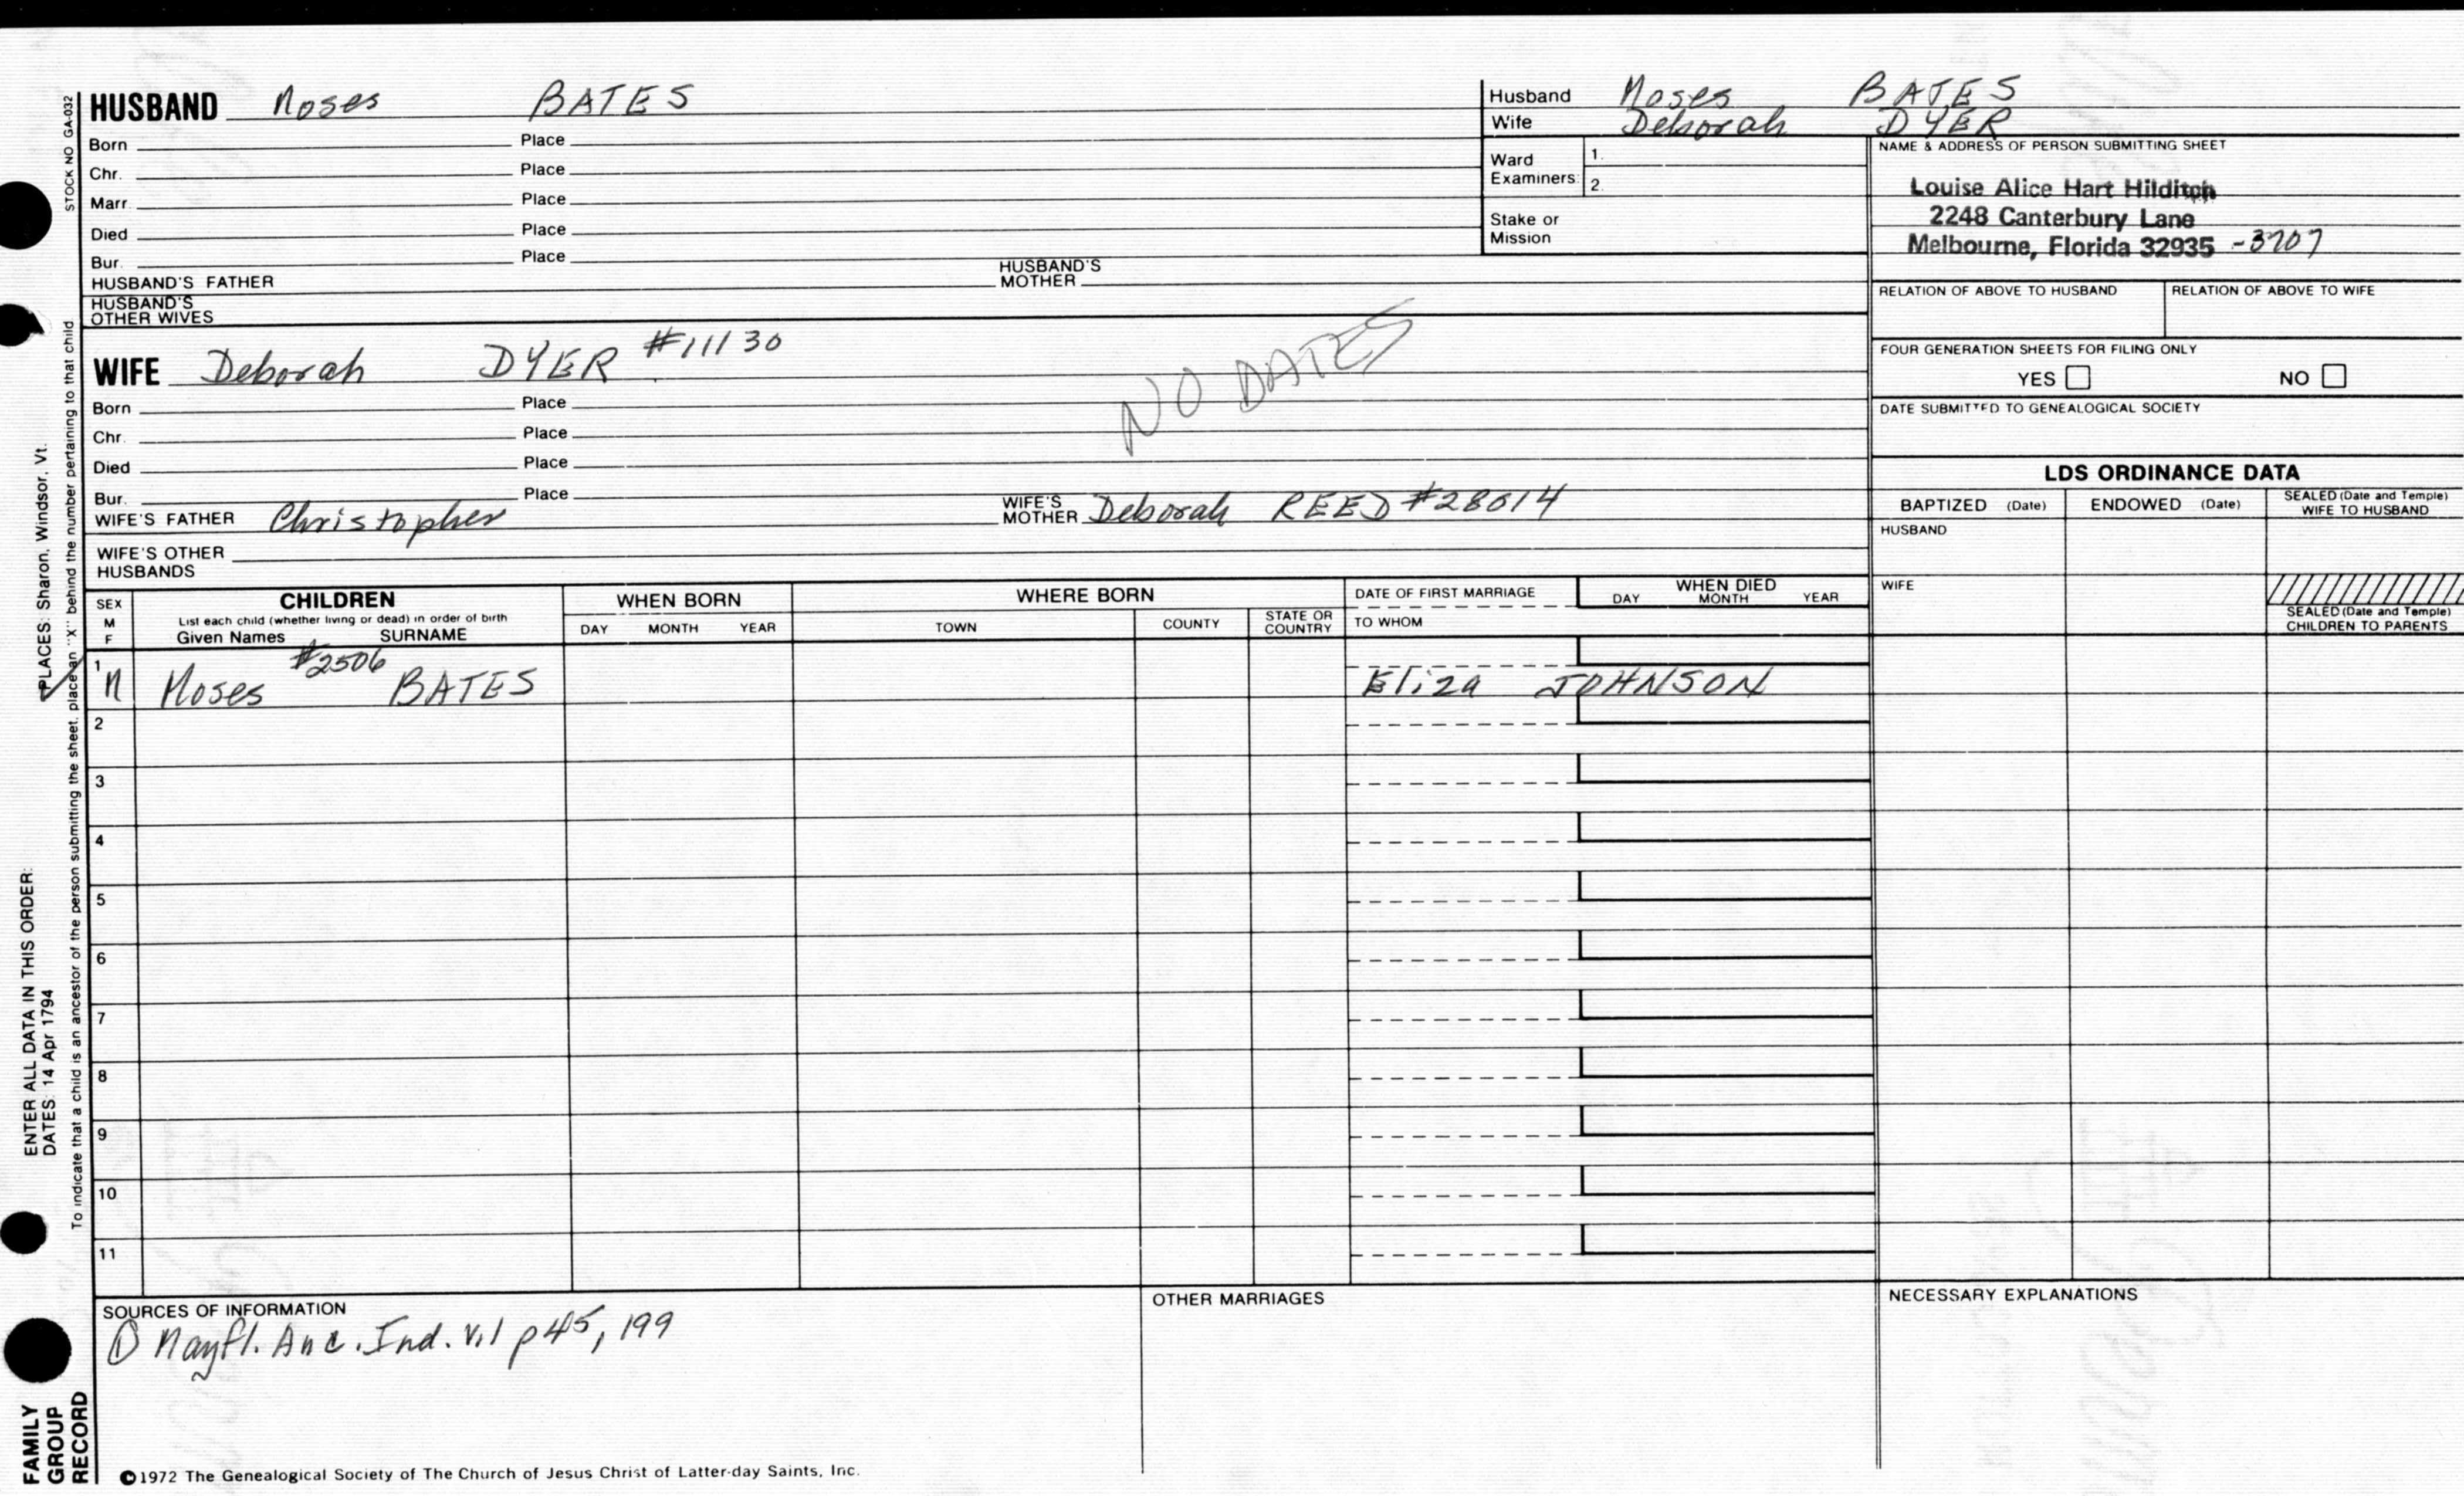 HUSBAND Moses BATES
Born Place
Chr. Place
Marr. Place
Died Place
Bur. Place
HUSBAND'S FATHER HUSBAND'S MOTHER
HUSBAND'S OTHER WIVES
Husband Moses BATES
Wife Deborah DYER
Ward Examiners: 1.
2.
Stake or Mission
NAME & ADDRESS OF PERSON SUBMITTING SHEET
Louise Alice Hart Hilditch
2248 Canterbury Lane
Melbourne, Florida 32935 -3707
RELATION OF ABOVE TO HUSBAND RELATION OF ABOVE TO WIFE
FOUR GENERATION SHEETS FOR FILING ONLY
YES NO
DATE SUBMITTED TO GENEALOGICAL SOCIETY
WIFE Deborah DYER #11130
NO DATES
Born Place
Chr. Place
Died Place
Bur. Place
WIFE'S FATHER Christopher WIFE'S MOTHER Deborah REED #28014
WIFE'S OTHER HUSBANDS
LDS ORDINANCE DATA
BAPTIZED (Date) ENDOWED (Date) SEALED (Date and Temple) WIFE TO HUSBAND
HUSBAND
WIFE
SEALED (Date and Temple) CHILDREN TO PARENTS
SEX M F
CHILDREN
List each child (whether living or dead) in order of birth
Given Names SURNAME
WHEN BORN
DAY MONTH YEAR
WHERE BORN
TOWN COUNTY STATE OR COUNTRY
DATE OF FIRST MARRIAGE
TO WHOM
WHEN DIED
DAY MONTH YEAR
1 M Moses #2506 BATES Eliza JOHNSON
2
3
4
5
6
7
8
9
10
11
SOURCES OF INFORMATION
① Mayfl. Anc. Ind. v.1 p45, 199
OTHER MARRIAGES
NECESSARY EXPLANATIONS
©1972 The Genealogical Society of The Church of Jesus Christ of Latter-day Saints, Inc.
STOCK NO GA-032
To indicate that a child is an ancestor of the person submitting the sheet, place an "X" behind the number pertaining to that child
ENTER ALL DATA IN THIS ORDER:
DATES: 14 Apr 1794
PLACES: Sharon, Windsor, Vt.
FAMILY
GROUP
RECORD